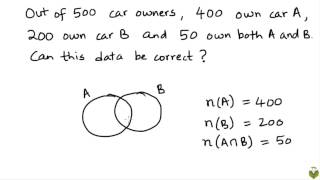 Out of 500 car owners, 400 own car A,
200 own car B and 50 own both A and B.
Can this data be correct?
A B
n(A) = 400
n(B) = 200
n(A∩B) = 50